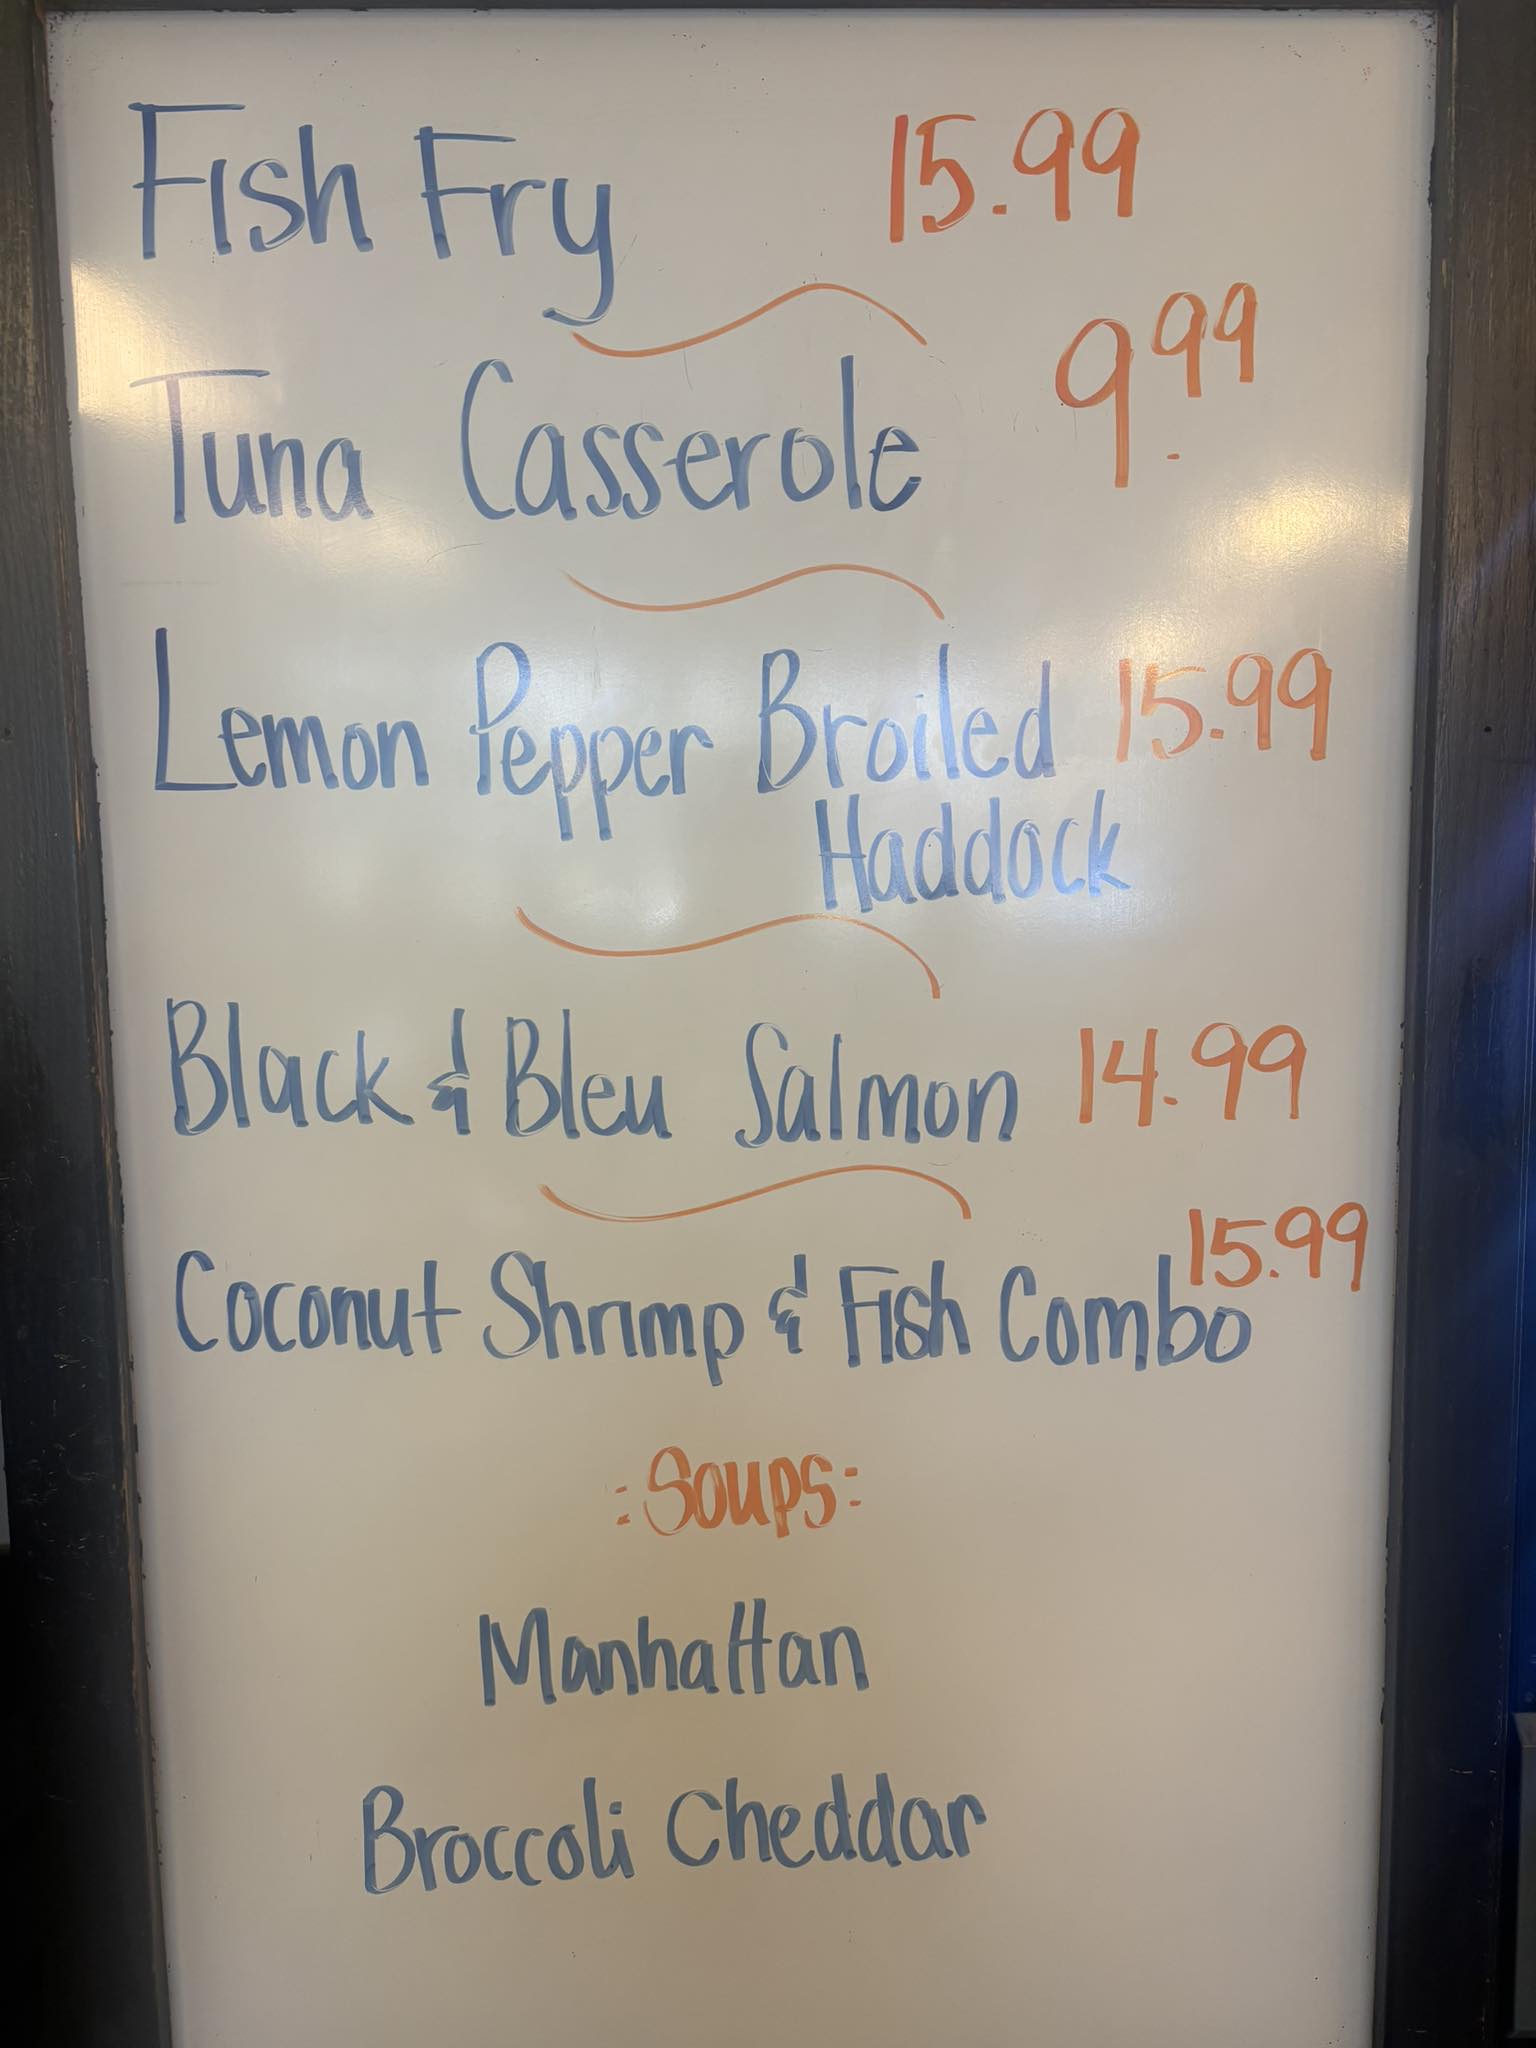 Fish Fry 15.99
Tuna Casserole 9.99
Lemon Pepper Broiled 15.99
Haddock
Black & Bleu Salmon 14.99
Coconut Shrimp & Fish Combo 15.99
:Soups:
Manhattan
Broccoli Cheddar